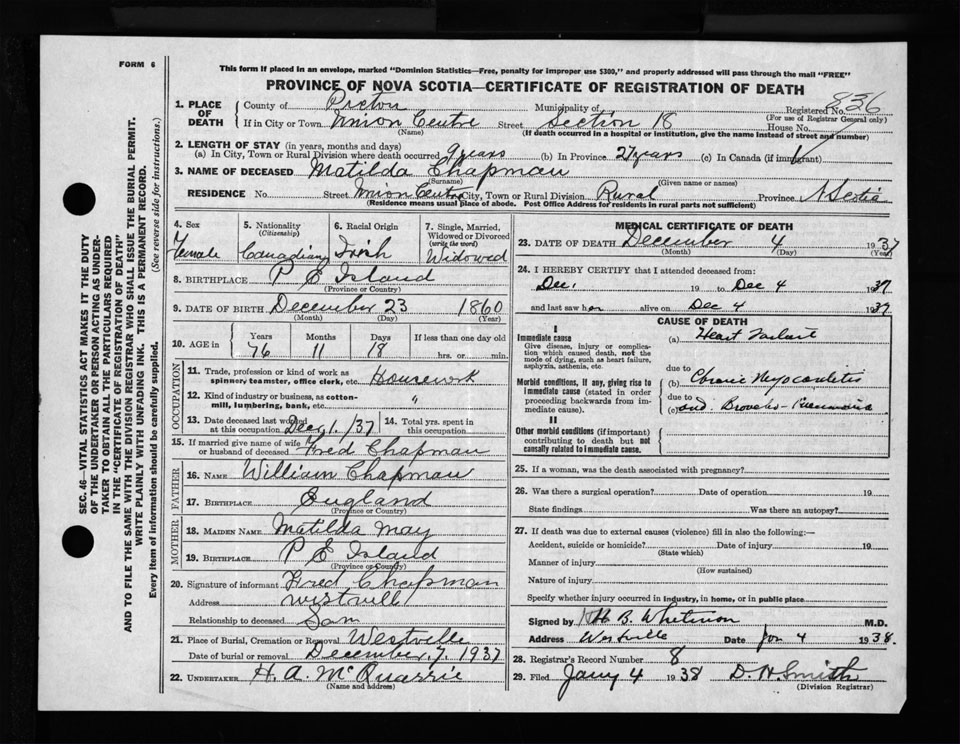 FORM 6
This form if placed in an envelope, marked "Dominion Statistics—Free, penalty for improper use $300," and properly addressed will pass through the mail "FREE"
PROVINCE OF NOVA SCOTIA—CERTIFICATE OF REGISTRATION OF DEATH
836
1. PLACE OF DEATH
County of Pictou Municipality of Registered No.
(For use of Registrar General only)
If in City or Town Union Centre Street Section 18 House No.
(Name) (If death occurred in a hospital or institution, give the name instead of street and number)
2. LENGTH OF STAY (in years, months and days)
(a) In City, Town or Rural Division where death occurred 9 years (b) In Province 27 years (c) In Canada (if immigrant)
3. NAME OF DECEASED Matilda Chapman
(Surname) (Given name or names)
RESIDENCE No. Street Union Centre City, Town or Rural Division Rural Province N Scotia
(Residence means usual place of abode. Post Office Address for residents in rural parts not sufficient)
4. Sex Female
5. Nationality (Citizenship) Canadian
6. Racial Origin Irish
7. Single, Married, Widowed or Divorced (write the word) Widowed
8. BIRTHPLACE P E Island
(Province or Country)
9. DATE OF BIRTH December 23 1860
(Month) (Day) (Year)
10. AGE in Years 76 Months 11 Days 18 If less than one day old hrs. or min.
OCCUPATION
11. Trade, profession or kind of work as spinner, teamster, office clerk, etc. Housework
12. Kind of industry or business, as cotton-mill, lumbering, bank, etc. "
13. Date deceased last worked at this occupation Dec 1. /37
14. Total yrs. spent in this occupation
15. If married give name of wife or husband of deceased Fred Chapman
FATHER
16. NAME William Chapman
17. BIRTHPLACE England
(Province or Country)
MOTHER
18. MAIDEN NAME Matilda May
19. BIRTHPLACE P E Island
(Province or Country)
20. Signature of informant Fred Chapman
Address westvill
Relationship to deceased Son
21. Place of Burial, Cremation or Removal Westville
Date of burial or removal December, 7, 1937
22. UNDERTAKER H. A. McQuarrie
(Name and address)
MEDICAL CERTIFICATE OF DEATH
23. DATE OF DEATH December 4 1937
(Month) (Day) (Year)
24. I HEREBY CERTIFY that I attended deceased from:
Dec 1 19 to Dec 4 1937
and last saw her alive on Dec 4 1937
CAUSE OF DEATH
I
Immediate cause
Give disease, injury or complication which caused death, not the mode of dying, such as heart failure, asphyxia, asthenia, etc.
(a) Heart Failure
due to
Morbid conditions, if any, giving rise to immediate cause (stated in order proceeding backwards from immediate cause).
(b) Chronic Myocarditis
due to
(c) and Broncho-Pneumonia
II
Other morbid conditions (if important) contributing to death but not causally related to immediate cause.
25. If a woman, was the death associated with pregnancy?
26. Was there a surgical operation? Date of operation 19
State findings Was there an autopsy?
27. If death was due to external causes (violence) fill in also the following:—
Accident, suicide or homicide? Date of injury 19
(State which)
Manner of injury
(How sustained)
Nature of injury
Specify whether injury occurred in industry, in home, or in public place
Signed by H B Whitman M.D.
Address Westville Date Jan 4 1938.
28. Registrar's Record Number 8
29. Filed Jany 4 1938 D. H. Smith
(Division Registrar)
SEC. 46—VITAL STATISTICS ACT MAKES IT THE DUTY
OF THE UNDERTAKER OR PERSON ACTING AS UNDER-
TAKER TO OBTAIN ALL THE PARTICULARS REQUIRED
IN THE "CERTIFICATE OF REGISTRATION OF DEATH"
AND TO FILE THE SAME WITH THE DIVISION REGISTRAR WHO SHALL ISSUE THE BURIAL PERMIT.
WRITE PLAINLY WITH UNFADING INK. THIS IS A PERMANENT RECORD.
Every item of information should be carefully supplied. (See reverse side for instructions.)